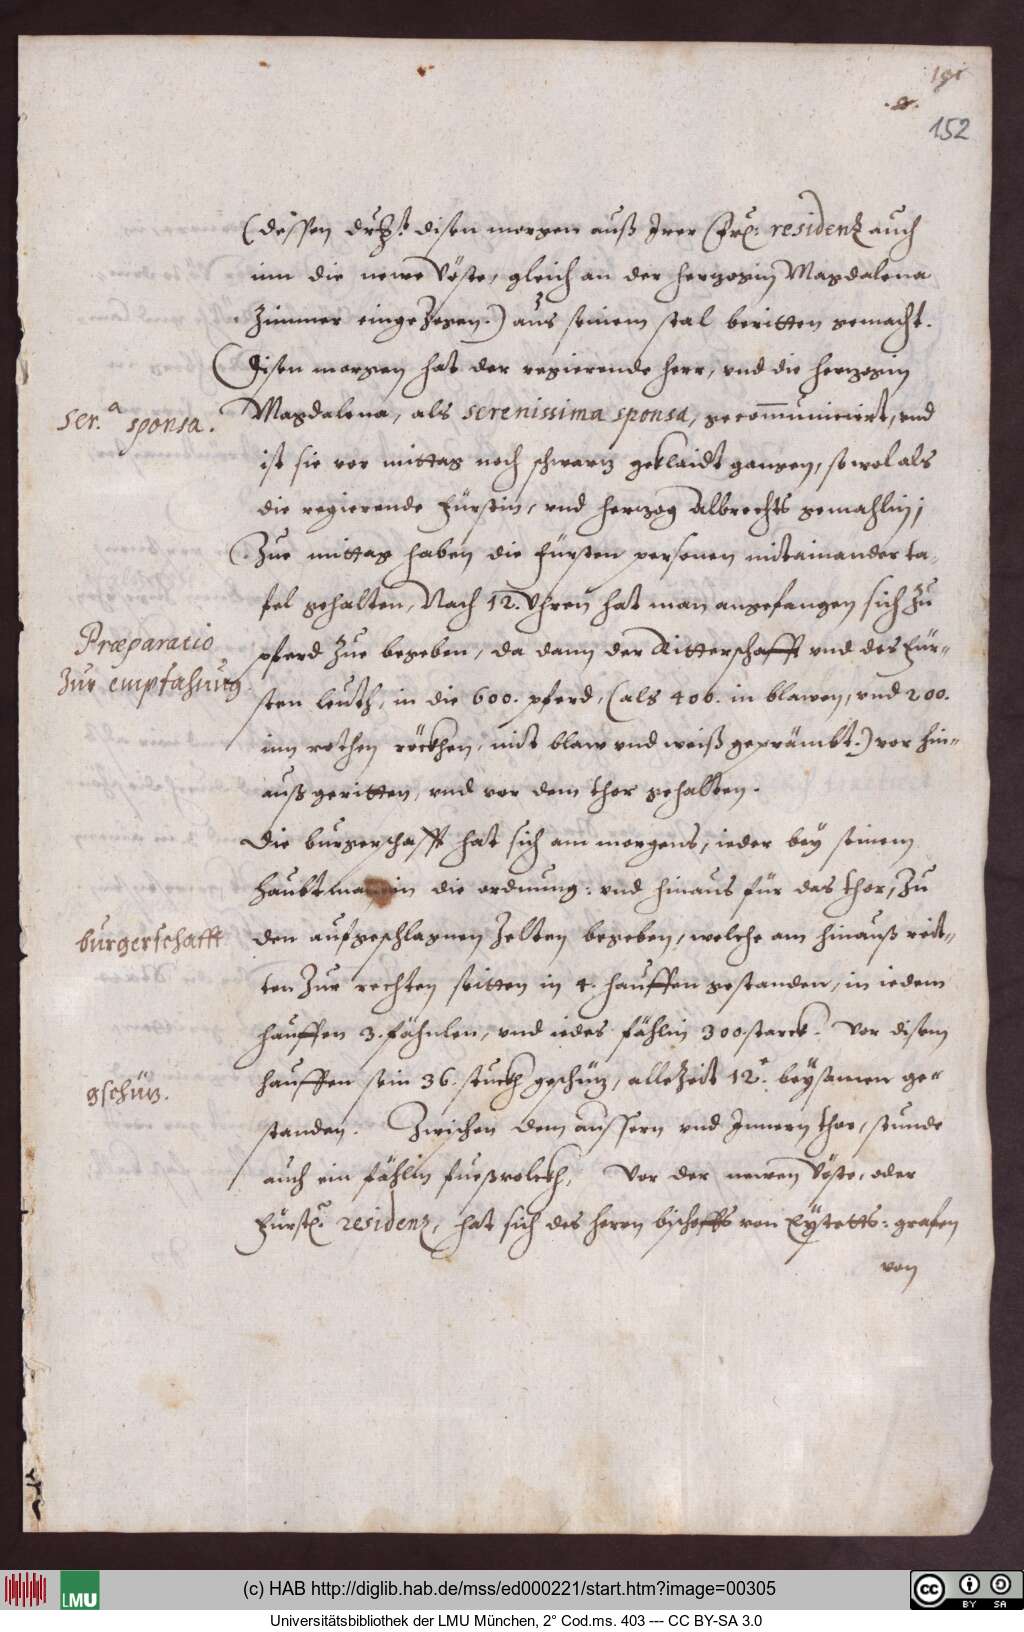 191
.a.
152
(dessen drhlt disen morgen auß Irer Frl: residenz auch
inn die newe Vöste, gleich an der herzogin Magdalena
Zimmer eingezogen.) aus seinem stal beritten gemacht.
Disen morgen hat der regierende herr, vnd die herzogin
Ser.a sponsa.
Magdalena, als serenissima sponsa, gecommuniciert, vnd
ist sie vor mittag noch schwarz geklaidt gangen, sowol als
die regierende Fürstin, vnd herzog Albrechts gemahlin;
Zue mittag haben die Fürsten personen mitainander ta-
fel gehalten, Nach 12. Vhren hat man angefangen sich zu
Præparatio
zur empfahung
pferd Zue begeben, da dann der Ritterschafft vnd des Für-
sten leuth, in die 600. pferd, (als 400. in blawen, vnd 200.
inn rothen röckhen, mit blaw vnd weiß geprämbt.) vor hin-
auß geritten, vnd vor dem thor gehalten.
Die burgerschafft hat sich am morgens, ieder bey seinem
haubtmann in die ordnung: vnd hinaus für das thor, zu
burgerschafft
den aufgeschlagnen Zelten begeben, welche am hinauß reit-
ten Zur rechten seitten in 4. hauffen gestanden, in iedem
hauffen 3. fähnlen, vnd iedes fählin 300. starck. Vor disem
gschüz.
hauffen sein 36. stuckh geschüz, allezeit 12. beysamen ge-
standen. Zwichen dem aussern vnd Innern thor, stunde
auch ein fählin fuessvolckh, Vor der newen Vöste, oder
Fürstl: residenz, hat sich des herrn bischoffs von Eystetts: grafen
von
(c) HAB http://diglib.hab.de/mss/ed000221/start.htm?image=00305
LMU
CC BY SA
Universitätsbibliothek der LMU München, 2° Cod.ms. 403 --- CC BY-SA 3.0